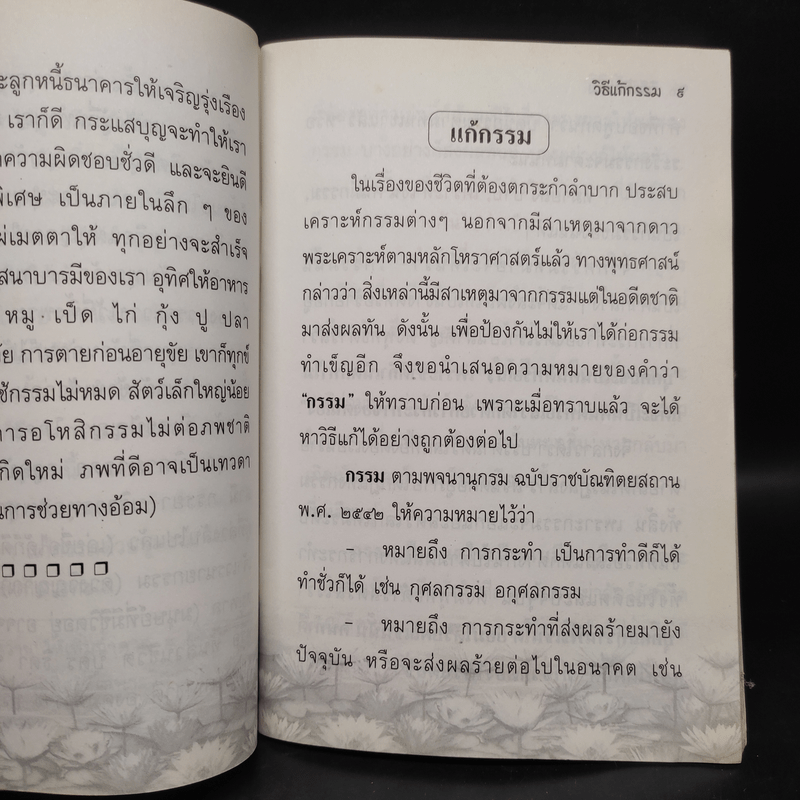 ะลูกหนี้ธนาคารให้เจริญรุ่งเรือง
เราก็ดี กระแสบุญจะทำให้เรา
ความผิดชอบชั่วดี และจะยินดี
พิเศษ เป็นภายในลึก ๆ ของ
ผ่เมตตาให้ ทุกอย่างจะสำเร็จ
สนาบารมีของเรา อุทิศให้อาหาร
หมู เป็ด ไก่ กุ้ง ปู ปลา
ัย การตายก่อนอายุขัย เขาก็ทุกข์
ช้กรรมไม่หมด สัตว์เล็กใหญ่น้อย
ารอโหสิกรรมไม่ต่อภพชาติ
กิดใหม่ ภพที่ดีอาจเป็นเทวดา
นการช่วยทางอ้อม)
วิธีแก้กรรม ๙
แก้กรรม
ในเรื่องของชีวิตที่ต้องตกระกำลำบาก ประสบ
เคราะห์กรรมต่างๆ นอกจากมีสาเหตุมาจากดาว
พระเคราะห์ตามหลักโหราศาสตร์แล้ว ทางพุทธศาสน์
กล่าวว่า สิ่งเหล่านี้มีสาเหตุมาจากกรรมแต่ในอดีตชาติ
มาส่งผลทัน ดังนั้น เพื่อป้องกันไม่ให้เราได้ก่อกรรม
ทำเข็ญอีก จึงขอนำเสนอความหมายของคำว่า
"กรรม" ให้ทราบก่อน เพราะเมื่อทราบแล้ว จะได้
หาวิธีแก้ได้อย่างถูกต้องต่อไป
กรรม ตามพจนานุกรม ฉบับราชบัณฑิตยสถาน
พ.ศ. ๒๕๔๒ ให้ความหมายไว้ว่า
- หมายถึง การกระทำ เป็นการทำดีก็ได้
ทำชั่วก็ได้ เช่น กุศลกรรม อกุศลกรรม
- หมายถึง การกระทำที่ส่งผลร้ายมายัง
ปัจจุบัน หรือจะส่งผลร้ายต่อไปในอนาคต เช่น